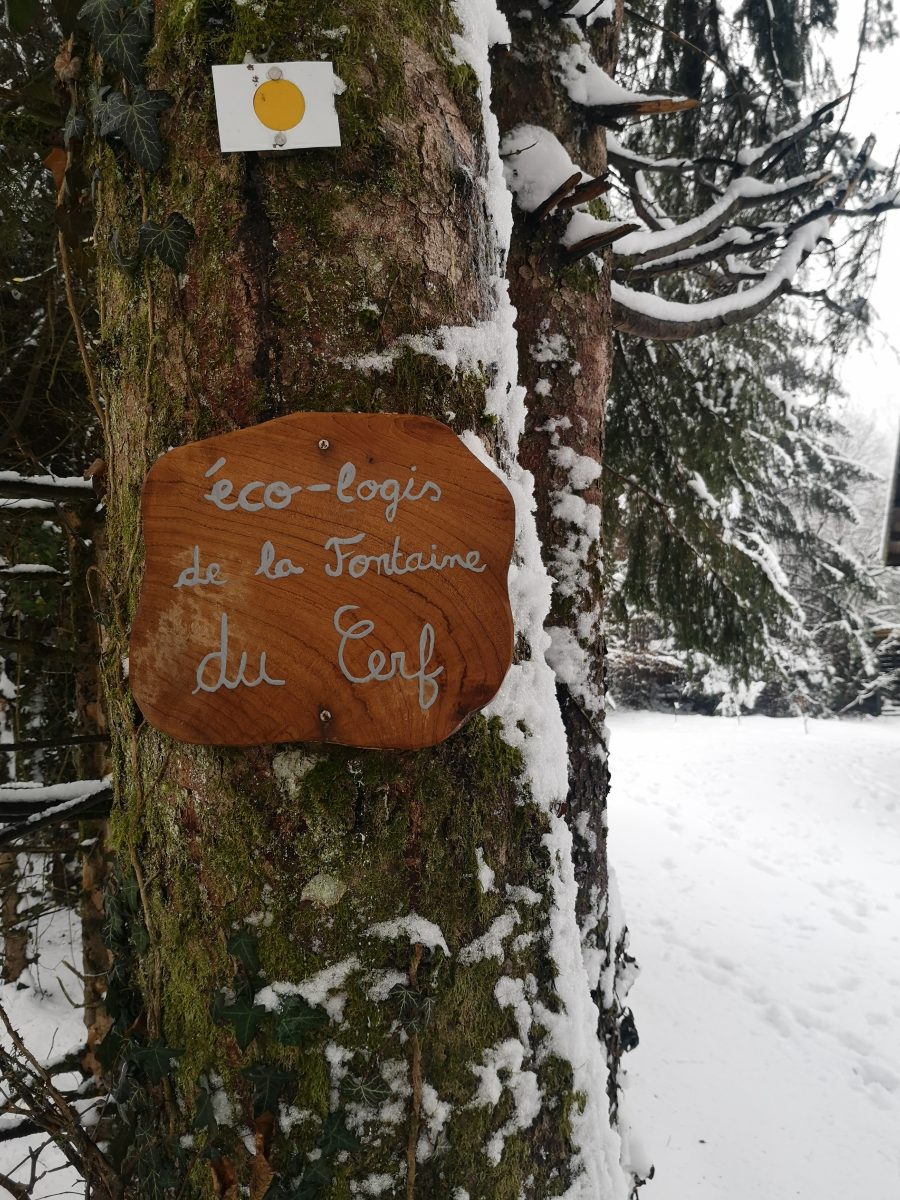 éco-logis
de la Fontaine
du Cerf